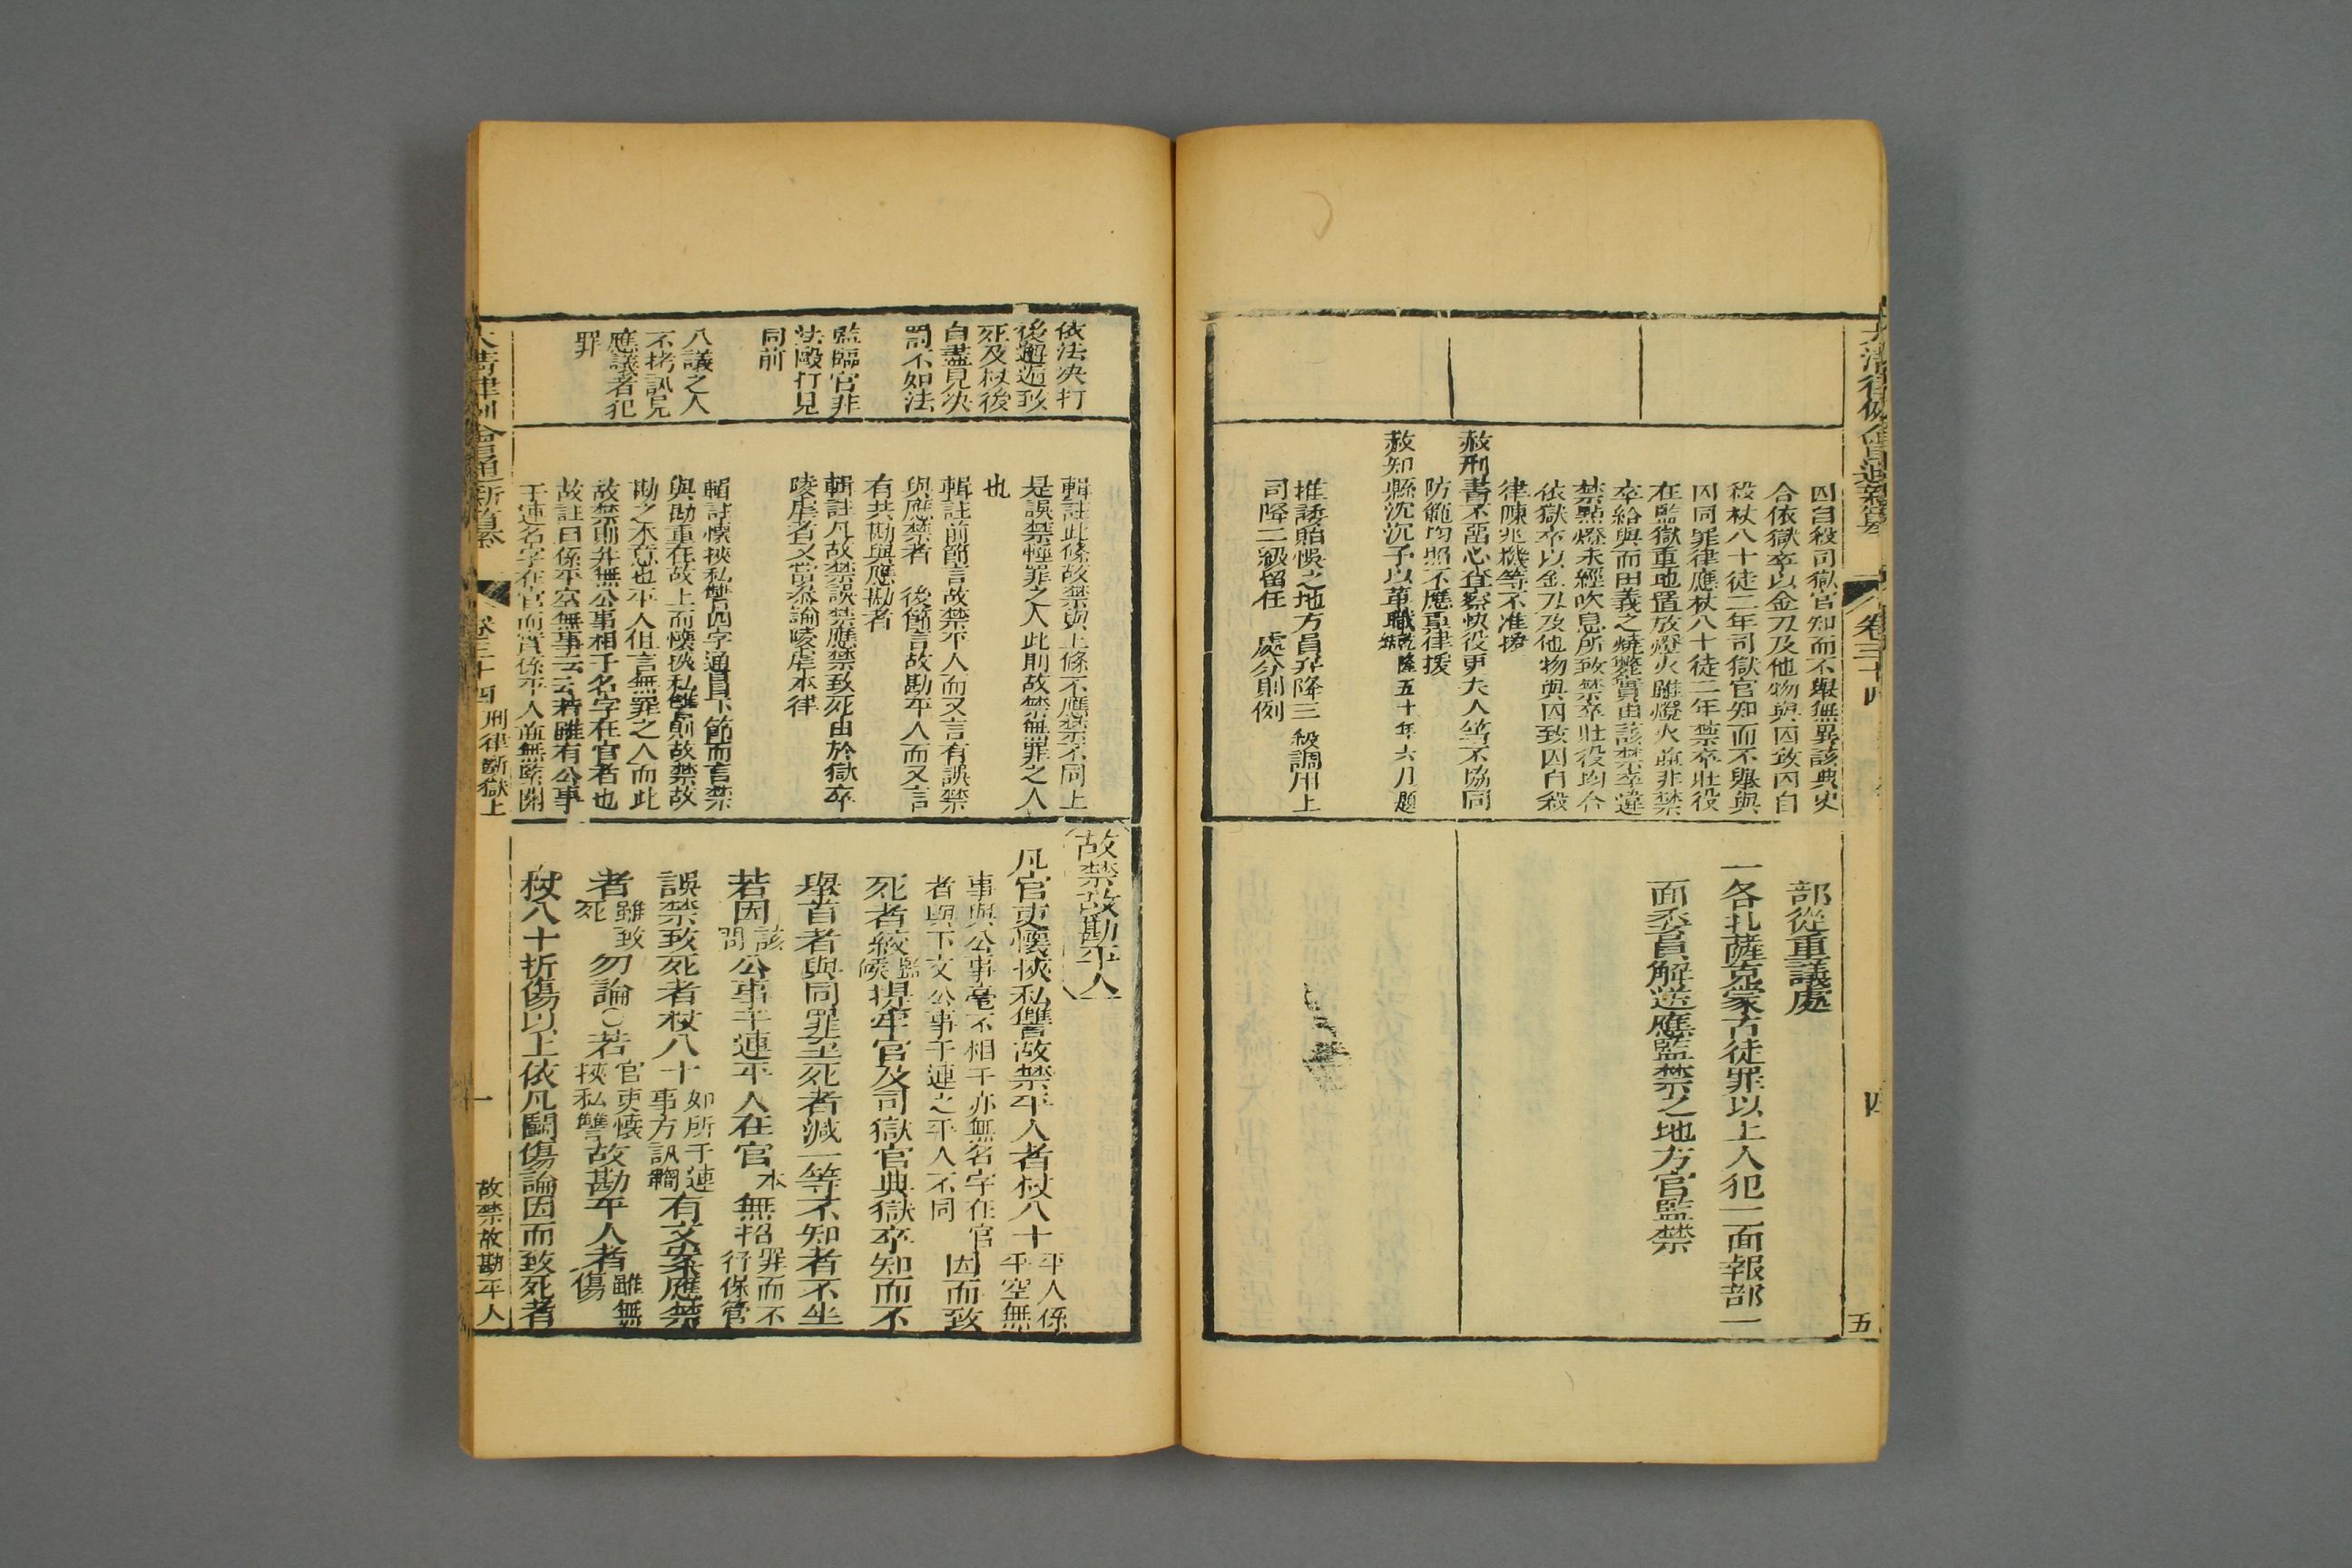 大清律例會通新纂
卷三十四
四
五
囚自殺司獄官知而不舉無異該典史
合依獄卒以金刃及他物與囚致囚自
殺杖八十徒二年司獄官知而不舉與
囚同罪律應杖八十徒二年禁卒壯役
在監獄重地置放燈火雖燈火並非禁
卒給與而田義之燒斃實由該禁卒違
禁點燈未經吹息所致禁卒壯役均合
依獄卒以金刃及他物與囚致囚自殺
律陳兆機等不准援
赦刑書不留心查察快役更夫人等不協同
防範均照不應重律援
赦知縣沈沉予以革職乾隆五十年六月題
推諉貽悞之地方員弁降三級調用上
司降二級留任 處分則例
部從重議處
一各扎薩克蒙古徒罪以上人犯一面報部一
面委員解送應監禁之地方官監禁
依法決打
後邂逅致
死及杖後
自盡見決
罰不如法
監臨官非
法毆打見
同前
八議之人
不拷訊見
應議者犯
罪
輯註此條故禁與上條不應禁不同上
是誤禁輕罪之人此則故禁無罪之人
也
輯註前節言故禁平人而又言有誤禁
與應禁者 後節言故勘平人而又言
有共勘與應勘者
輯註凡故禁誤禁應禁致死由於獄卒
陵虐者又當參論陵虐本律
輯註懷挾私讐四字通貫下節而言禁
與勘重在故上而懷挾私讐則故禁故
勘之本意也平人但言無罪之人而此
故禁則并無公事相干名字在官者也
故註曰係平空無事云云若雖有公事
干連名字在官而實係平人並無緊關
故禁故勘平人
凡官吏懷挾私讐故禁平人者杖八十平人係平空無
事與公事毫不相干亦無名字在官者與下文公事干連之平人不同因而致
死者絞監候提牢官及司獄官典獄卒知而不
舉首者與同罪至死者減一等不知者不坐
若因該問公事干連平人在官本無招罪而不行保管
誤禁致死者杖八十如所干連事方訊鞫有文案應禁
者雖致死勿論○若官吏懷挾私讐故勘平人者雖無傷
杖八十折傷以上依凡鬭傷論因而致死者
大清律例會通新纂
卷三十四
刑律斷獄上
一
故禁故勘平人